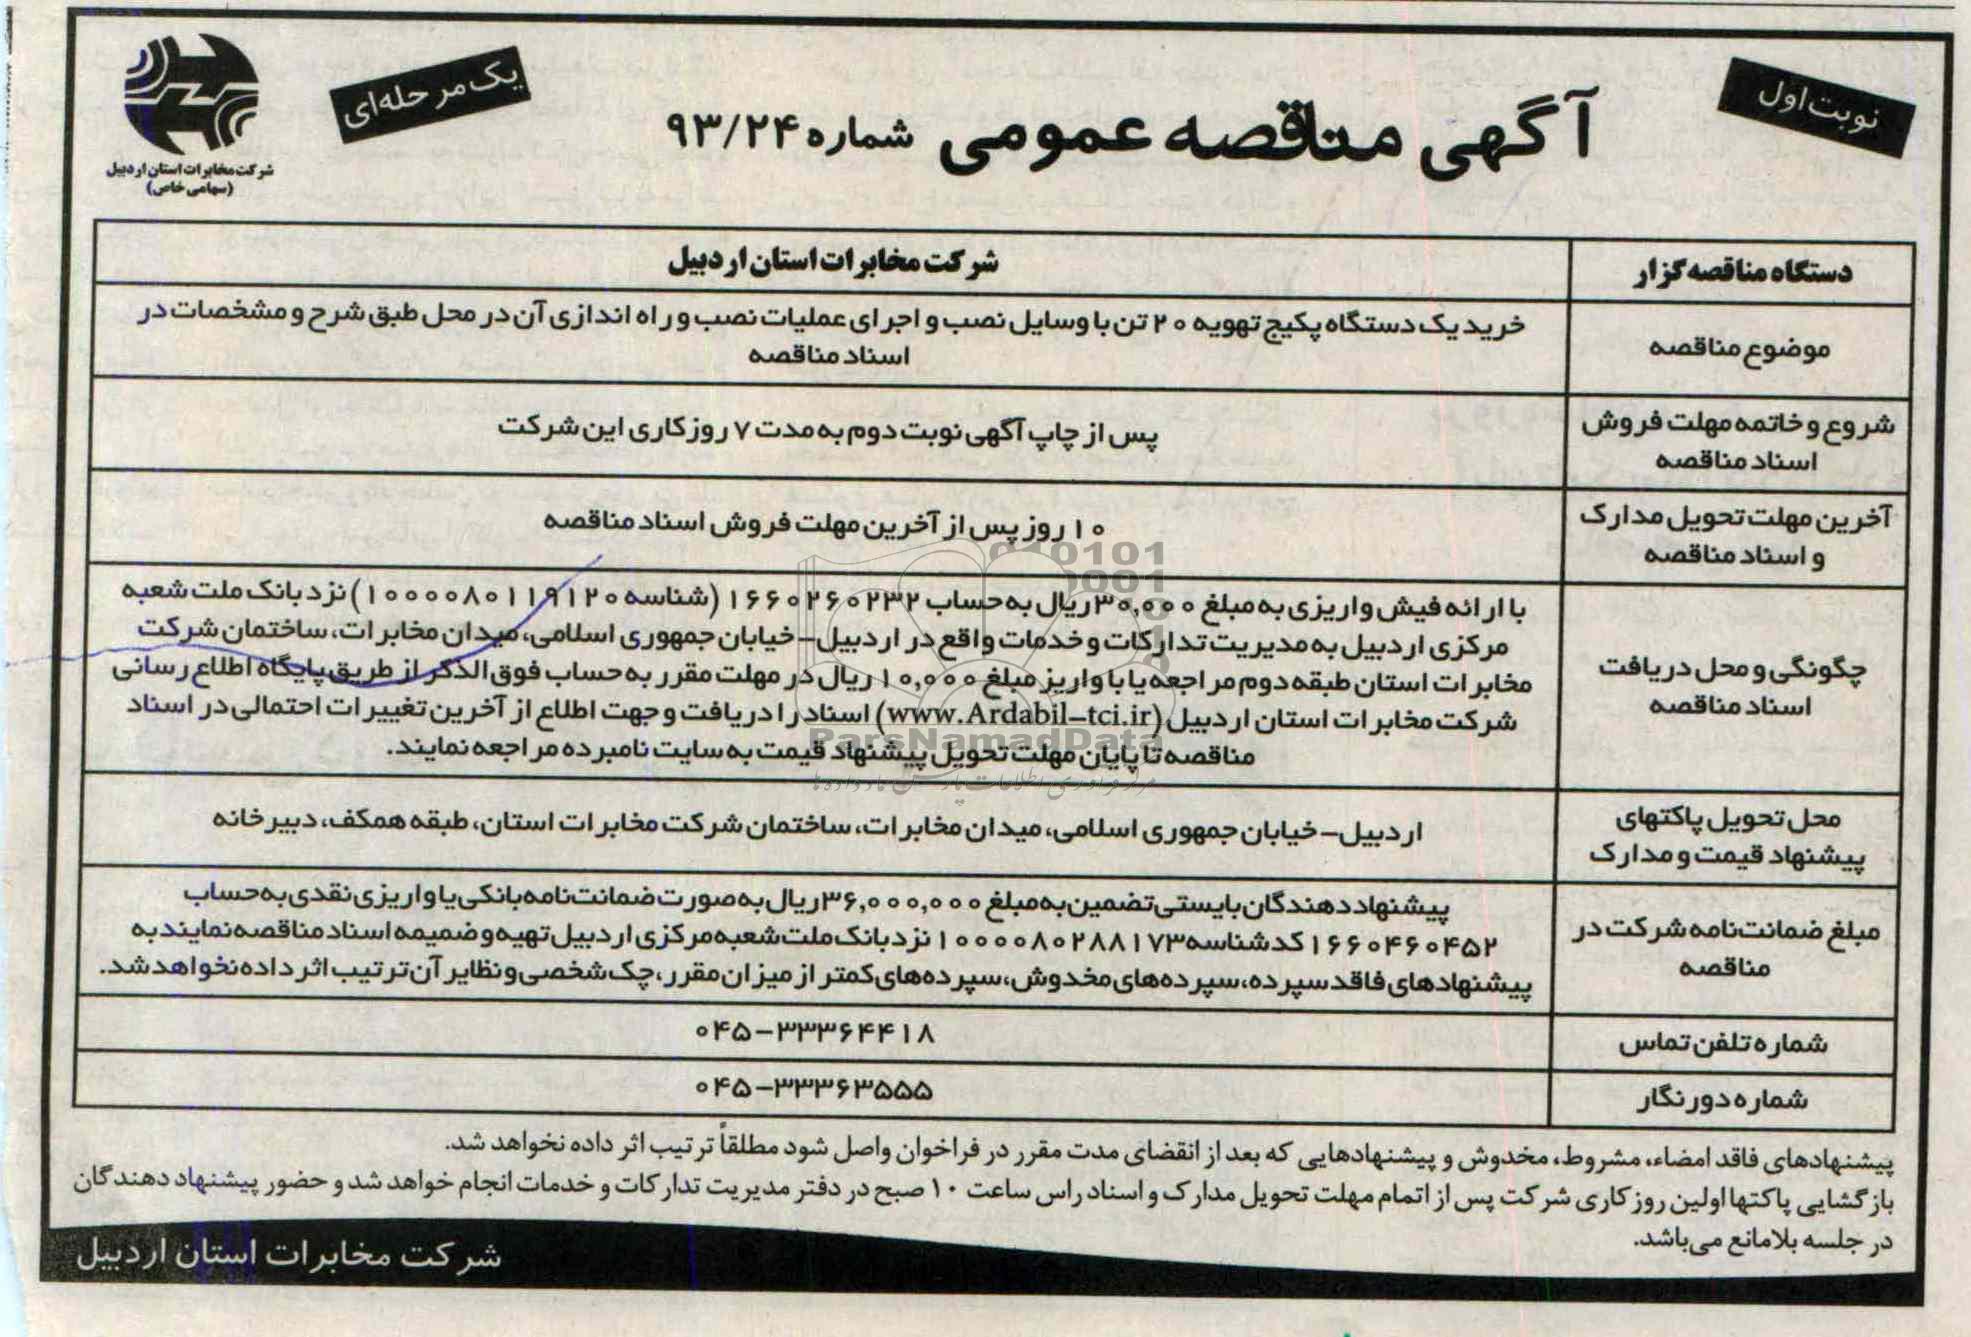 نوبت اول
آگهی مناقصه عمومی شماره ۹۳/۲۴
یک مرحله‌ای
شرکت مخابرات استان اردبیل
(سهامی خاص)
دستگاه مناقصه گزار
شرکت مخابرات استان اردبیل
موضوع مناقصه
خرید یک دستگاه پکیج تهویه ۲۰ تن با وسایل نصب و اجرای عملیات نصب و راه اندازی آن در محل طبق شرح و مشخصات در
اسناد مناقصه
شروع و خاتمه مهلت فروش
اسناد مناقصه
پس از چاپ آگهی نوبت دوم به مدت ۷ روز کاری این شرکت
آخرین مهلت تحویل مدارک
و اسناد مناقصه
۱۰ روز پس از آخرین مهلت فروش اسناد مناقصه
چگونگی و محل دریافت
اسناد مناقصه
با ارائه فیش واریزی به مبلغ ۳۰,۰۰۰ ریال به حساب ۱۶۶۰۲۶۰۲۳۲ (شناسه ۱۰۰۰۰۸۰۱۱۹۱۲۰) نزد بانک ملت شعبه
مرکزی اردبیل به مدیریت تدارکات و خدمات واقع در اردبیل- خیابان جمهوری اسلامی، میدان مخابرات، ساختمان شرکت
مخابرات استان طبقه دوم مراجعه یا با واریز مبلغ ۱۰,۰۰۰ ریال در مهلت مقرر به حساب فوق الذکر از طریق پایگاه اطلاع رسانی
شرکت مخابرات استان اردبیل (www.Ardabil-tci.ir) اسناد را دریافت و جهت اطلاع از آخرین تغییرات احتمالی در اسناد
مناقصه تا پایان مهلت تحویل پیشنهاد قیمت به سایت نامبرده مراجعه نمایند.
محل تحویل پاکتهای
پیشنهاد قیمت و مدارک
اردبیل- خیابان جمهوری اسلامی، میدان مخابرات، ساختمان شرکت مخابرات استان، طبقه همکف، دبیرخانه
مبلغ ضمانت نامه شرکت در
مناقصه
پیشنهاد دهندگان بایستی تضمین به مبلغ ۳۶,۰۰۰,۰۰۰ ریال به صورت ضمانت نامه بانکی یا واریزی نقدی به حساب
۱۶۶۰۴۶۰۴۵۲ کد شناسه ۱۰۰۰۰۸۰۲۸۸۱۷۳ نزد بانک ملت شعبه مرکزی اردبیل تهیه و ضمیمه اسناد مناقصه نمایند به
پیشنهادهای فاقد سپرده، سپرده‌های مخدوش، سپرده‌های کمتر از میزان مقرر، چک شخصی و نظایر آن ترتیب اثر داده نخواهد شد.
شماره تلفن تماس
۰۴۵-۳۳۳۶۴۴۱۸
شماره دورنگار
۰۴۵-۳۳۳۶۳۵۵۵
پیشنهادهای فاقد امضاء، مشروط، مخدوش و پیشنهادهایی که بعد از انقضای مدت مقرر در فراخوان واصل شود مطلقاً ترتیب اثر داده نخواهد شد.
بازگشایی پاکتها اولین روز کاری شرکت پس از اتمام مهلت تحویل مدارک و اسناد راس ساعت ۱۰ صبح در دفتر مدیریت تدارکات و خدمات انجام خواهد شد و حضور پیشنهاد دهندگان
در جلسه بلامانع می‌باشد.
شرکت مخابرات استان اردبیل
ParsNamadData